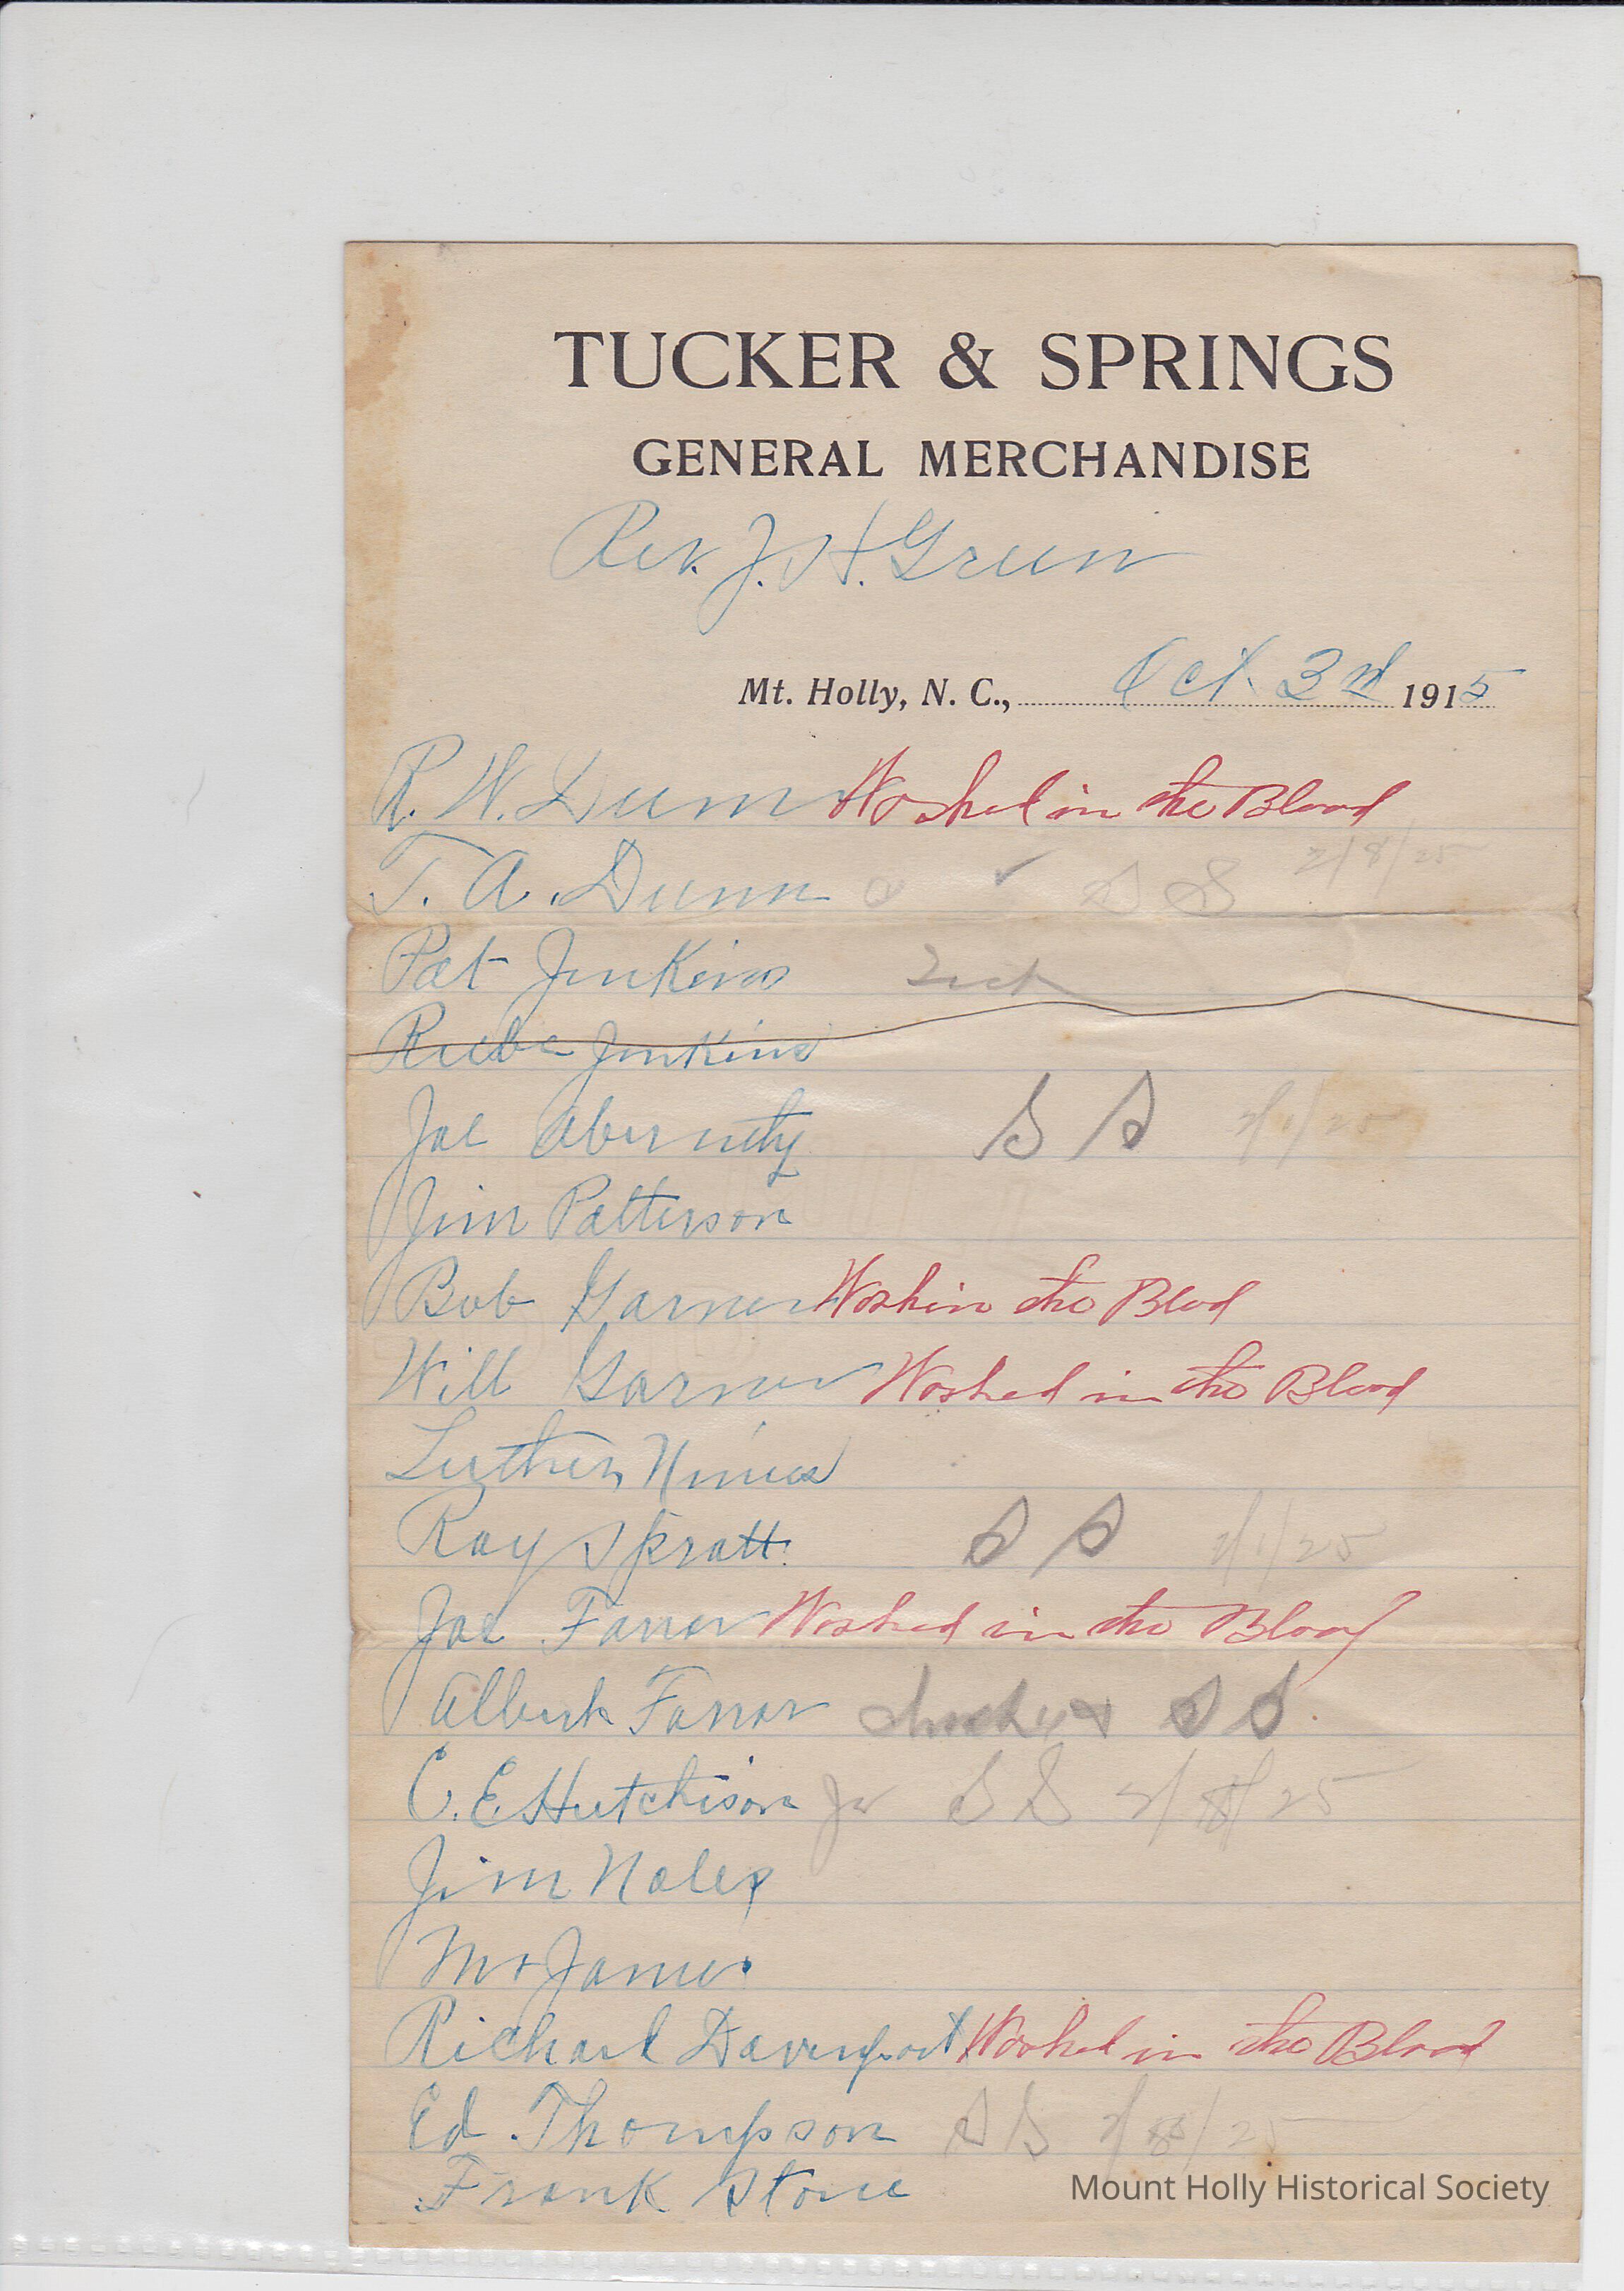 TUCKER & SPRINGS
GENERAL MERCHANDISE
Rev. J. H. Green
Mt. Holly, N. C., Oct. 3rd 1915
R. W. Dunn Washed in the Blood
T. A. Dunn S S 2/8/25
Pat Jenkins
Rube Jenkins
Joe Abernety S S 2/1/25
Jim Patterson
Bob Garner Wash in the Blod
Will Garner Washed in the Blood
Luther Nimes
Roy Spratt. S S 2/1/25
Joe Farrar Washed in the Blood
Albert Farrar S S
C. E Hutchison Jr S S 2/8/25
Jim Noles
Mr James
Richard Davenport Washed in the Blood
Ed Thompson S S 2/8/25
Frank Stone
Mount Holly Historical Society